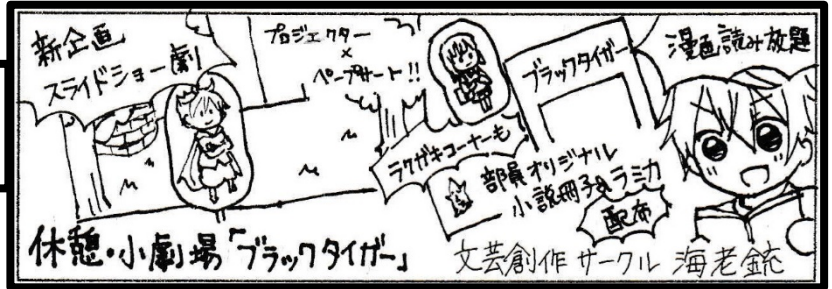 新企画
スライドショー劇
プロジェクター
×
ペープサート!!
ブラックタイガー
漫画読み放題
ラクガキコーナーも
部員オリジナル
小説冊子&ラミカ
配布
休憩・小劇場「ブラックタイガー」
文芸創作サークル 海老銃